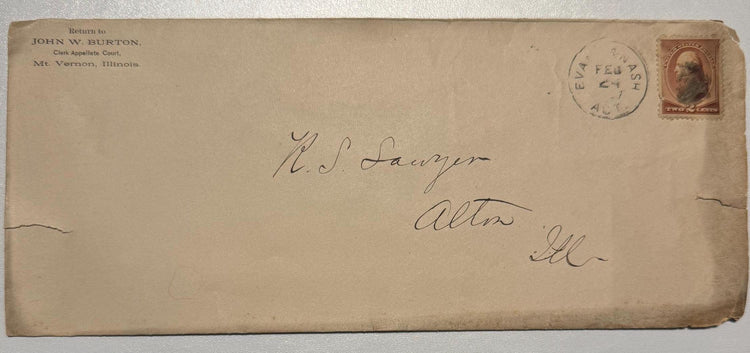 Return to
JOHN W. BURTON.
Clerk Appellate Court,
Mt. Vernon, Illinois.
EVA NASH
FEB
24
TWO 2 CENTS
R. S. Sawyer
Alton
Ill